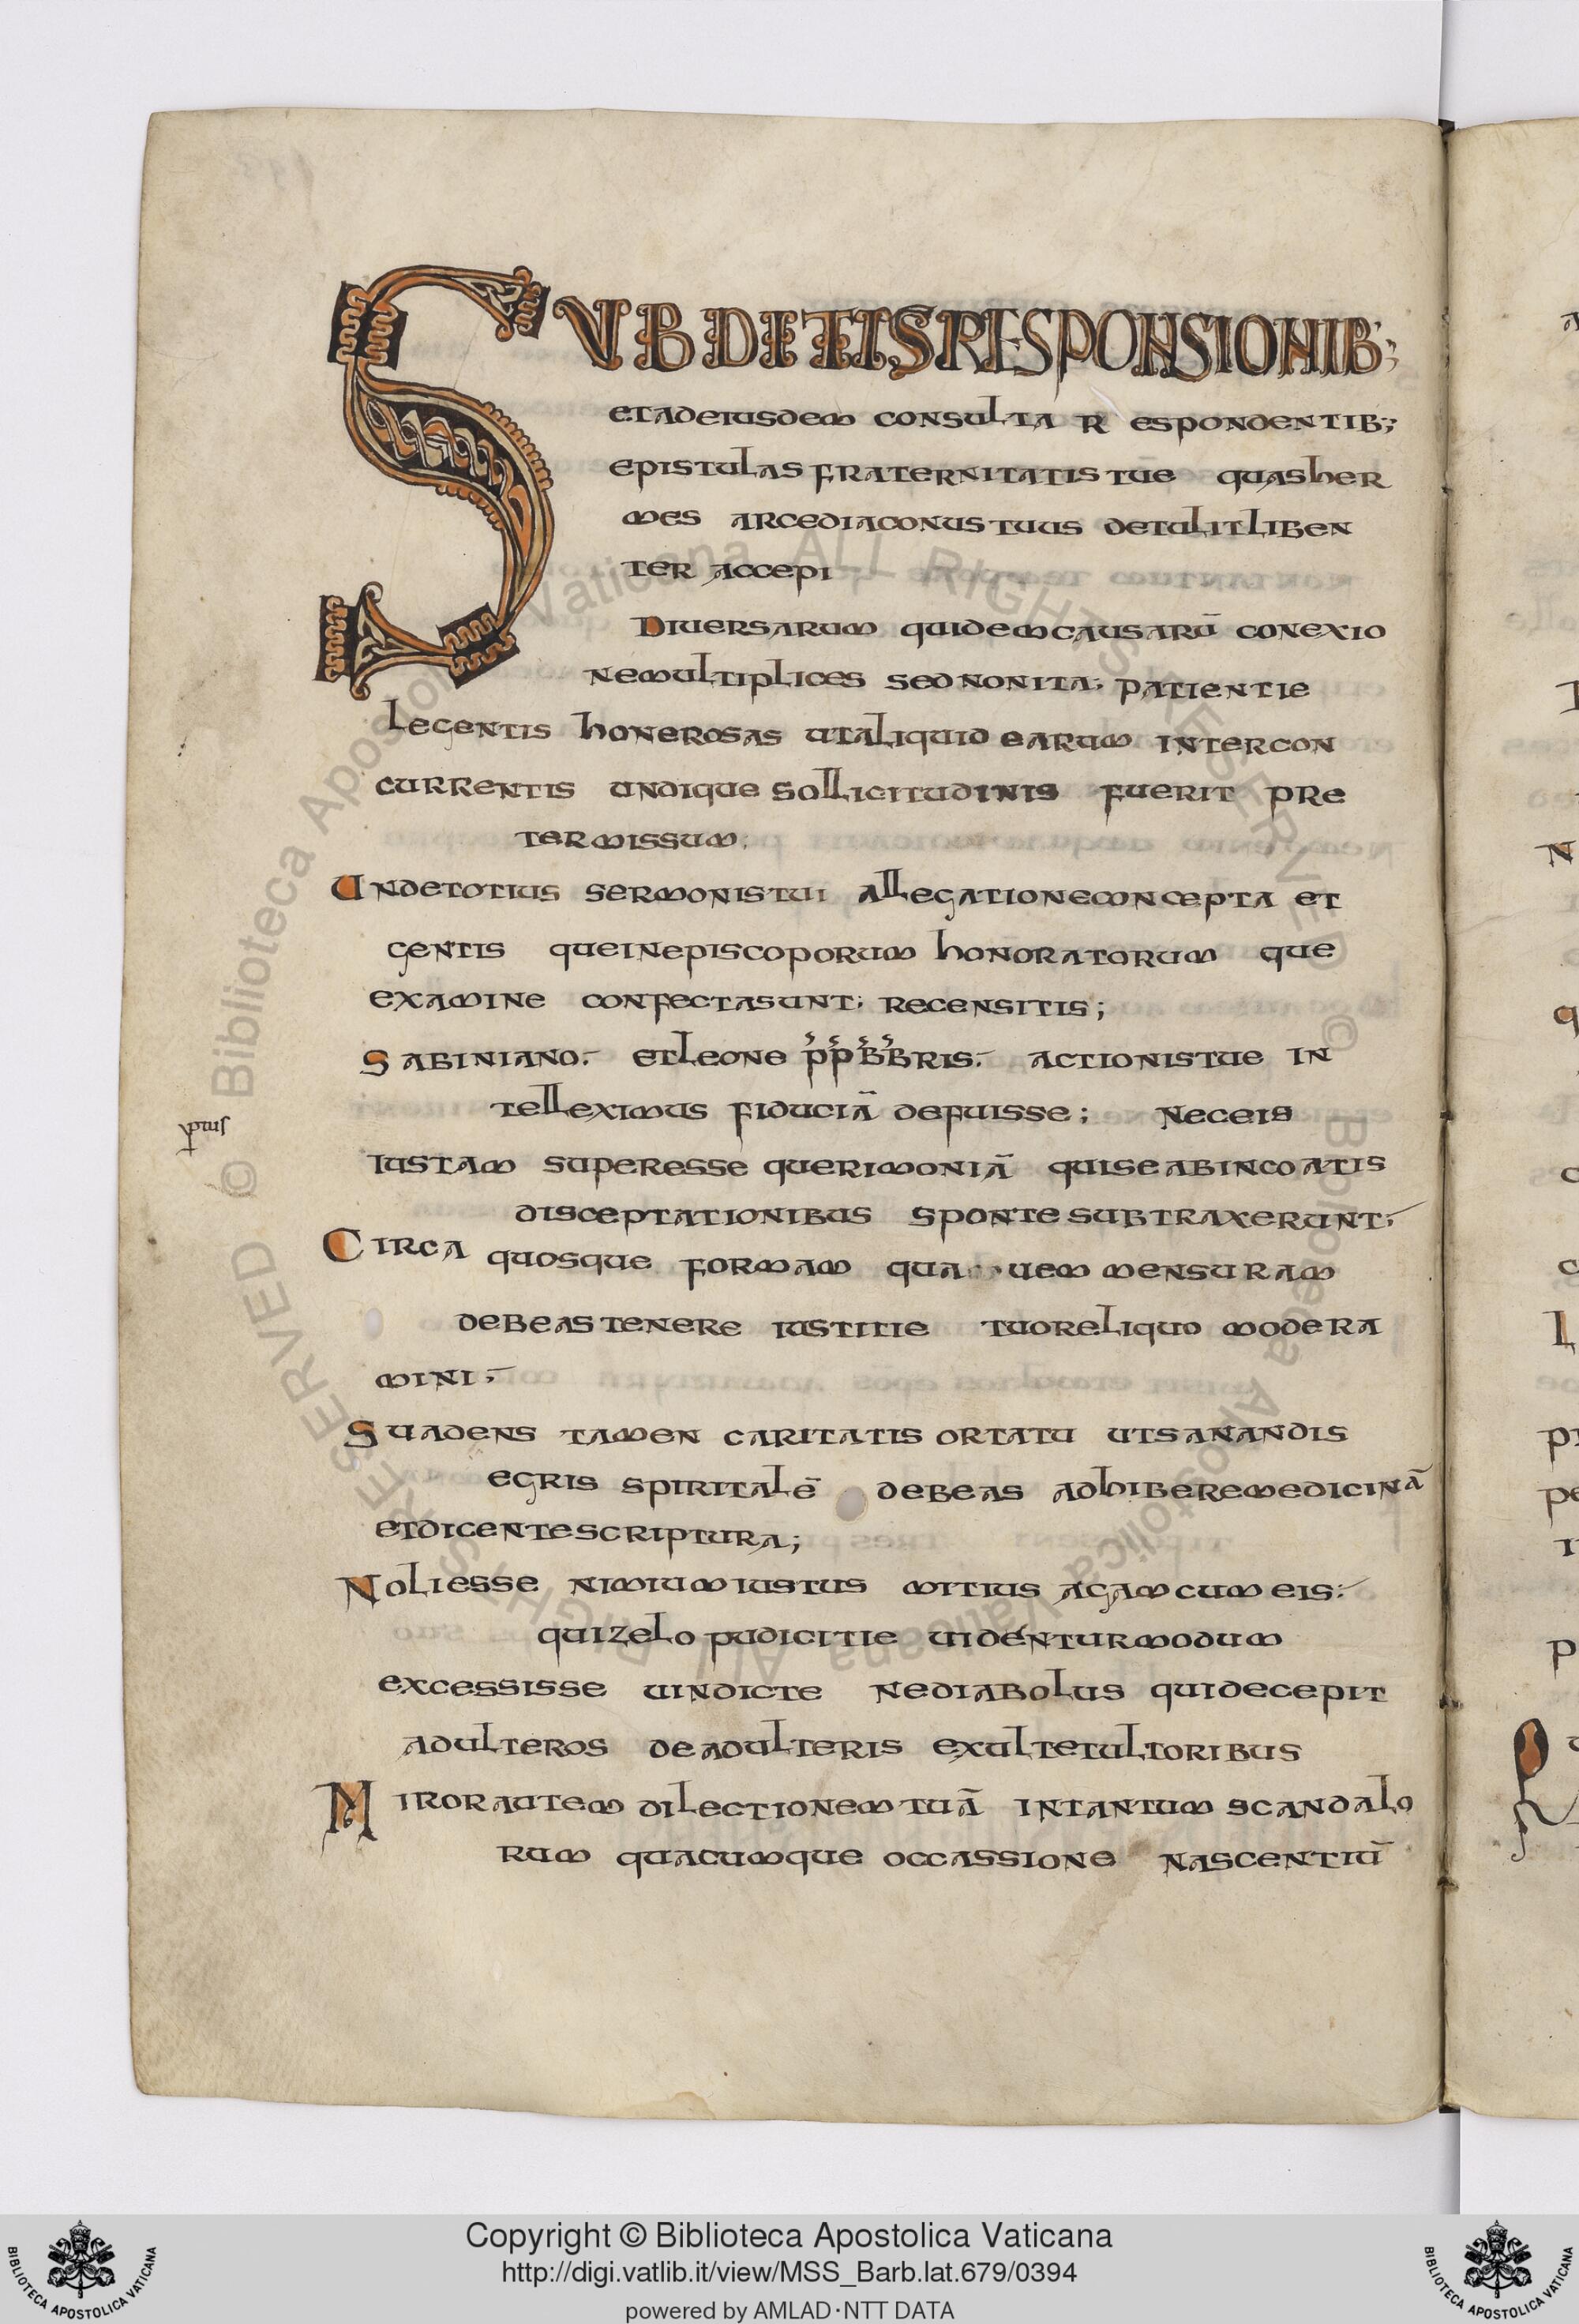 SUBDITIS RESPONSIONIB;
et ad eiusdem consulta R espondentib;
epistulas fraternitatis tue quas her
mes arcediaconus tuus detulit liben
ter accepi
Diuersarum quidem causarū conexio
ne multiplices sed non ita· patientie
legentis honerosas ut aliquid earum inter con
currentis undique sollicitudinis fuerit pre
termissum·
Unde totius sermonis tui allegatione concepta et
gentis que in episcoporum honoratorum que
examine confecta sunt· recensitis;
Sabiniano·- et leone p̄p̄b̄b̄ris·- actionis tue in
telleximus fiduciā defuisse; Nec eis
iustam superesse querimoniā qui se ab incoatis
disceptationibus sponte subtraxerunt;
Circa quosque formam qua uem mensuram
debeas tenere iustitie tuo reliquo modera
mini;
Suadens tamen caritatis ortatu ut sanandis
egris spiritalē debeas adhibere medicinā
et dicente scriptura;
Noli esse nimium iustus mitius agam cum eis·
qui zelo pudicitie uidéntur modum
excessisse uindicte ne diabolus qui decepit
adulteros de adulteris exultet ultoribus
Miror autem dilectionem tuā in tantum scandalo
rum quacumque occassione nascentiū
Copyright © Biblioteca Apostolica Vaticana
http://digi.vatlib.it/view/MSS_Barb.lat.679/0394
powered by AMLAD·NTT DATA
BIBLIOTECA APOSTOLICA VATICANA
BIBLIOTECA APOSTOLICA VATICANA
© Biblioteca Apostolica Vaticana ALL RIGHTS RESERVED
© Biblioteca Apostolica Vaticana ALL RIGHTS RESERVED